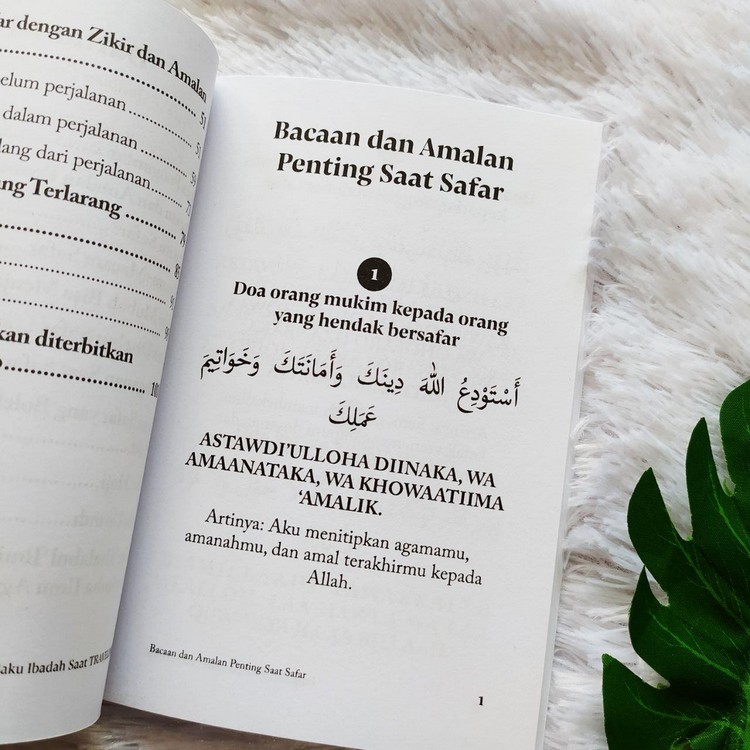 dengan Zikir dan Amalan
perjalanan
dalam perjalanan
dari perjalanan
Terlarang
diterbitkan
Ibadah Saat
Bacaan dan Amalan
Penting Saat Safar
1
Doa orang mukim kepada orang
yang hendak bersafar
أَسْتَوْدِعُ اللهَ دِينَكَ وَأَمَانَتَكَ وَخَوَاتِيمَ
عَمَلِكَ
ASTAWDI'ULLOHA DIINAKA, WA
AMAANATAKA, WA KHOWAATIIMA
'AMALIK.
Artinya: Aku menitipkan agamamu,
amanahmu, dan amal terakhirmu kepada
Allah.
Bacaan dan Amalan Penting Saat Safar
1